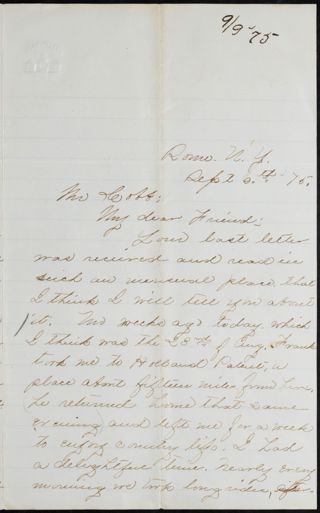 9/9 '75
Rome N. Y.
Sept 9th 75.
Mr Cobb;
My dear Friend;
Your last letter
was recieved and read in
such an unusual place that
I think I will tell you about
it. Two weeks ago today, which
I think was the 28th of Aug, Frank
took me to Holland Patent, a
place about fifteen miles from here,
he returned home that same
evening and left me for a week
to enjoy country life. I had
a delightful time. Nearly every
morning we took long rides,